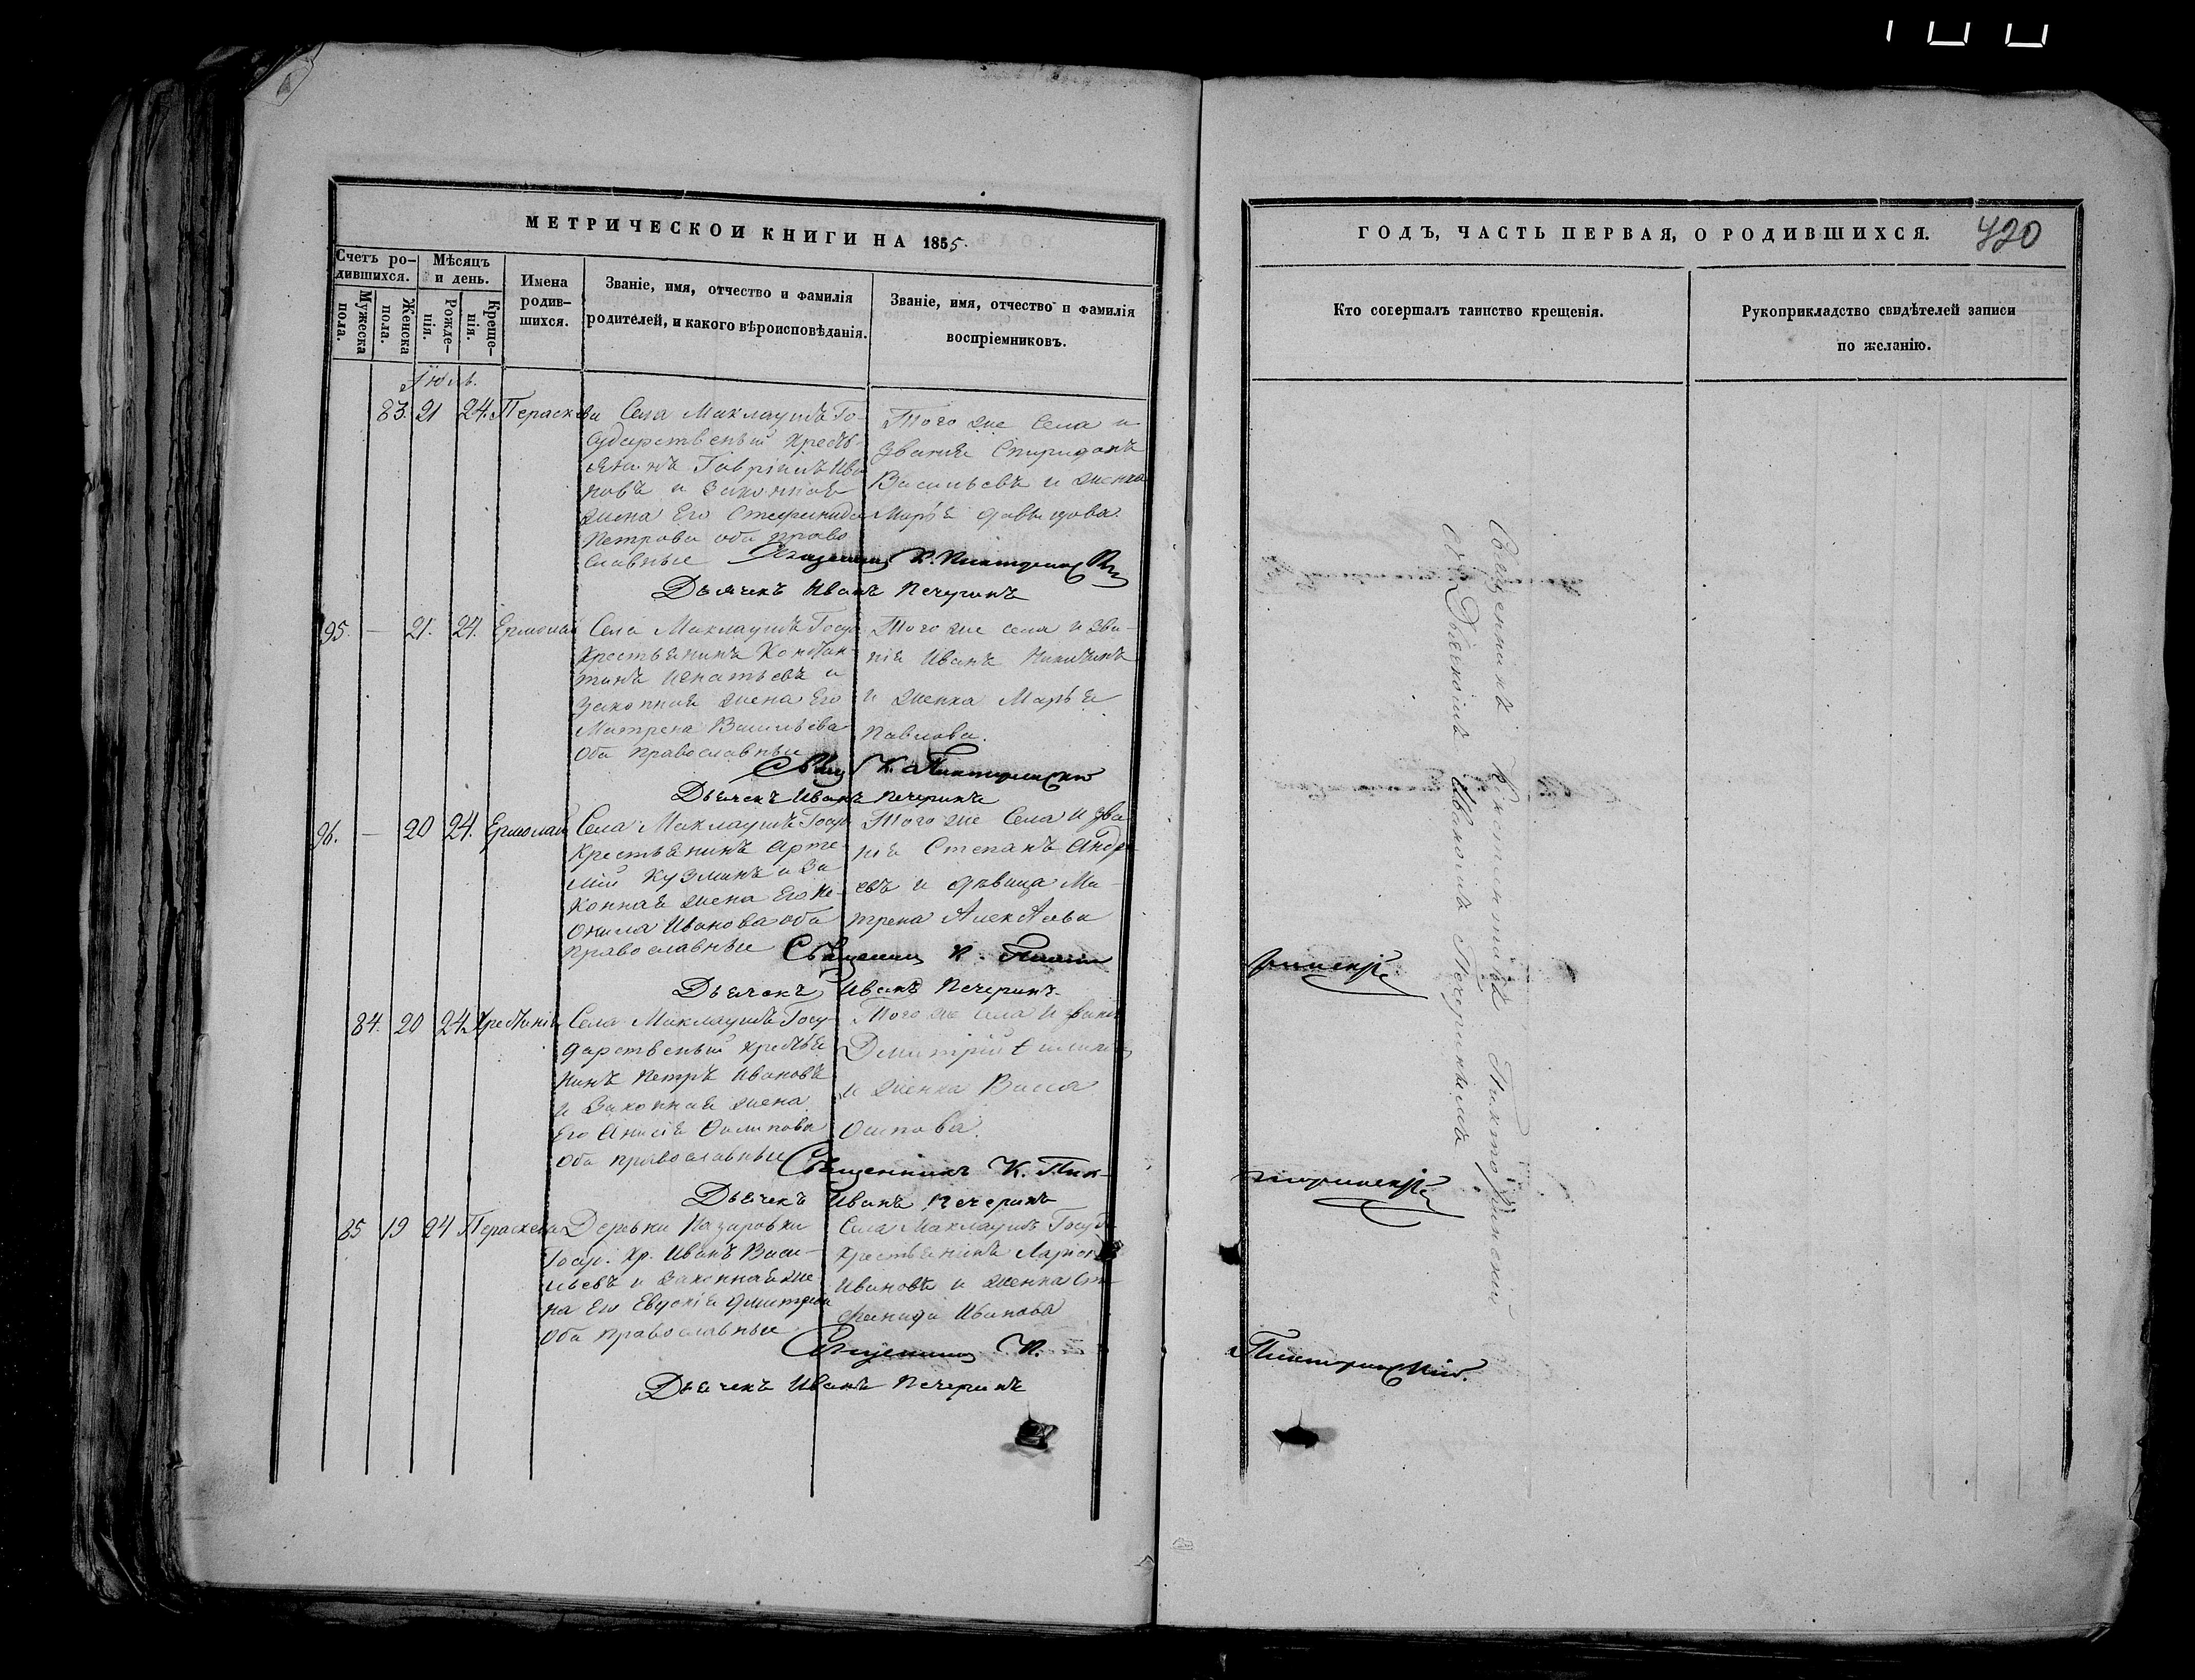 100
МЕТРИЧЕСКОЙ КНИГИ НА 1855.
Счетъ ро-
дившихся.
Мужеска
пола.
Женска
пола.
Мѣсяцъ
и день.
Рожде-
нія.
Креще-
нія.
Имена
родив-
шихся.
Званіе, имя, отчество и фамилія
родителей, и какого вѣроисповѣданія.
Званіе, имя, отчество и фамилія
воспріемниковъ.
Іюль.
83. 21 24. Пераскева
Села Маклаушъ Го-
сударственый Кресть-
янинъ Гавріилъ Ива
новъ и Законная
жена Его Стефанида
Петрова оба право
славные
Того же Села и
званія Спиридонъ
Васильевъ и женка
Марья Давыдова.
Священник К. Пиктор
Дьячекъ Иванъ Печеринъ
95. — 21. 24. Ермолай
Села Маклаушъ Госуд
Крестьянинъ Констан-
тинъ Игнатьевъ и
законная жена Его
Матрена Васильева
Оба православные
Того же села и зва-
нія Иванъ Никитинъ
и женка Марья
Павлова.
Свящ К.
Дьячекъ Иванъ Печеринъ
96. — 20 24. Ермолай
Села Маклаушъ Госуд
Крестьянинъ Арте-
мій Кузминъ и За
конная жена Его Не-
онила Иванова оба
православные
Того же Села и зва
нія Степанъ Андре
евъ и дѣвица Ма-
трена Алексѣева
Священник К.
Дьячекъ Иванъ Печеринъ
84. 20 24. Христинія
Села Маклаушъ Госу-
дарственый крестья
нинъ Петръ Ивановъ
и Законная жена
Его Анисія Филипова
Оба православные
Того же села и званія
Дмитрій
и женка Васса
Осипова.
Священникъ К. Пик-
Дьячекъ Иванъ Печеринъ
85 19 24 Пераскева
Деревни Назаровки
Госуд. Кр. Иванъ Васи-
льевъ и Законная же
на Его Евдокія Дмитріева
Оба православные
Села Маклаушъ Госуд.
Крестьянинъ Ларіонъ
Ивановъ и женка Сте
фанида Иванова
Священник К.
Дьячекъ Иванъ Печеринъ
ГОДЪ, ЧАСТЬ ПЕРВАЯ, О РОДИВШИХСЯ.
420
Кто совершалъ таинство крещенія.
Рукоприкладство свидѣтелей записи
по желанію.
Священникъ Константинъ Пикторинскій
съ Дьячкомъ Иваномъ Печеринымъ
ринскій
торинскій
Пикторинскій.